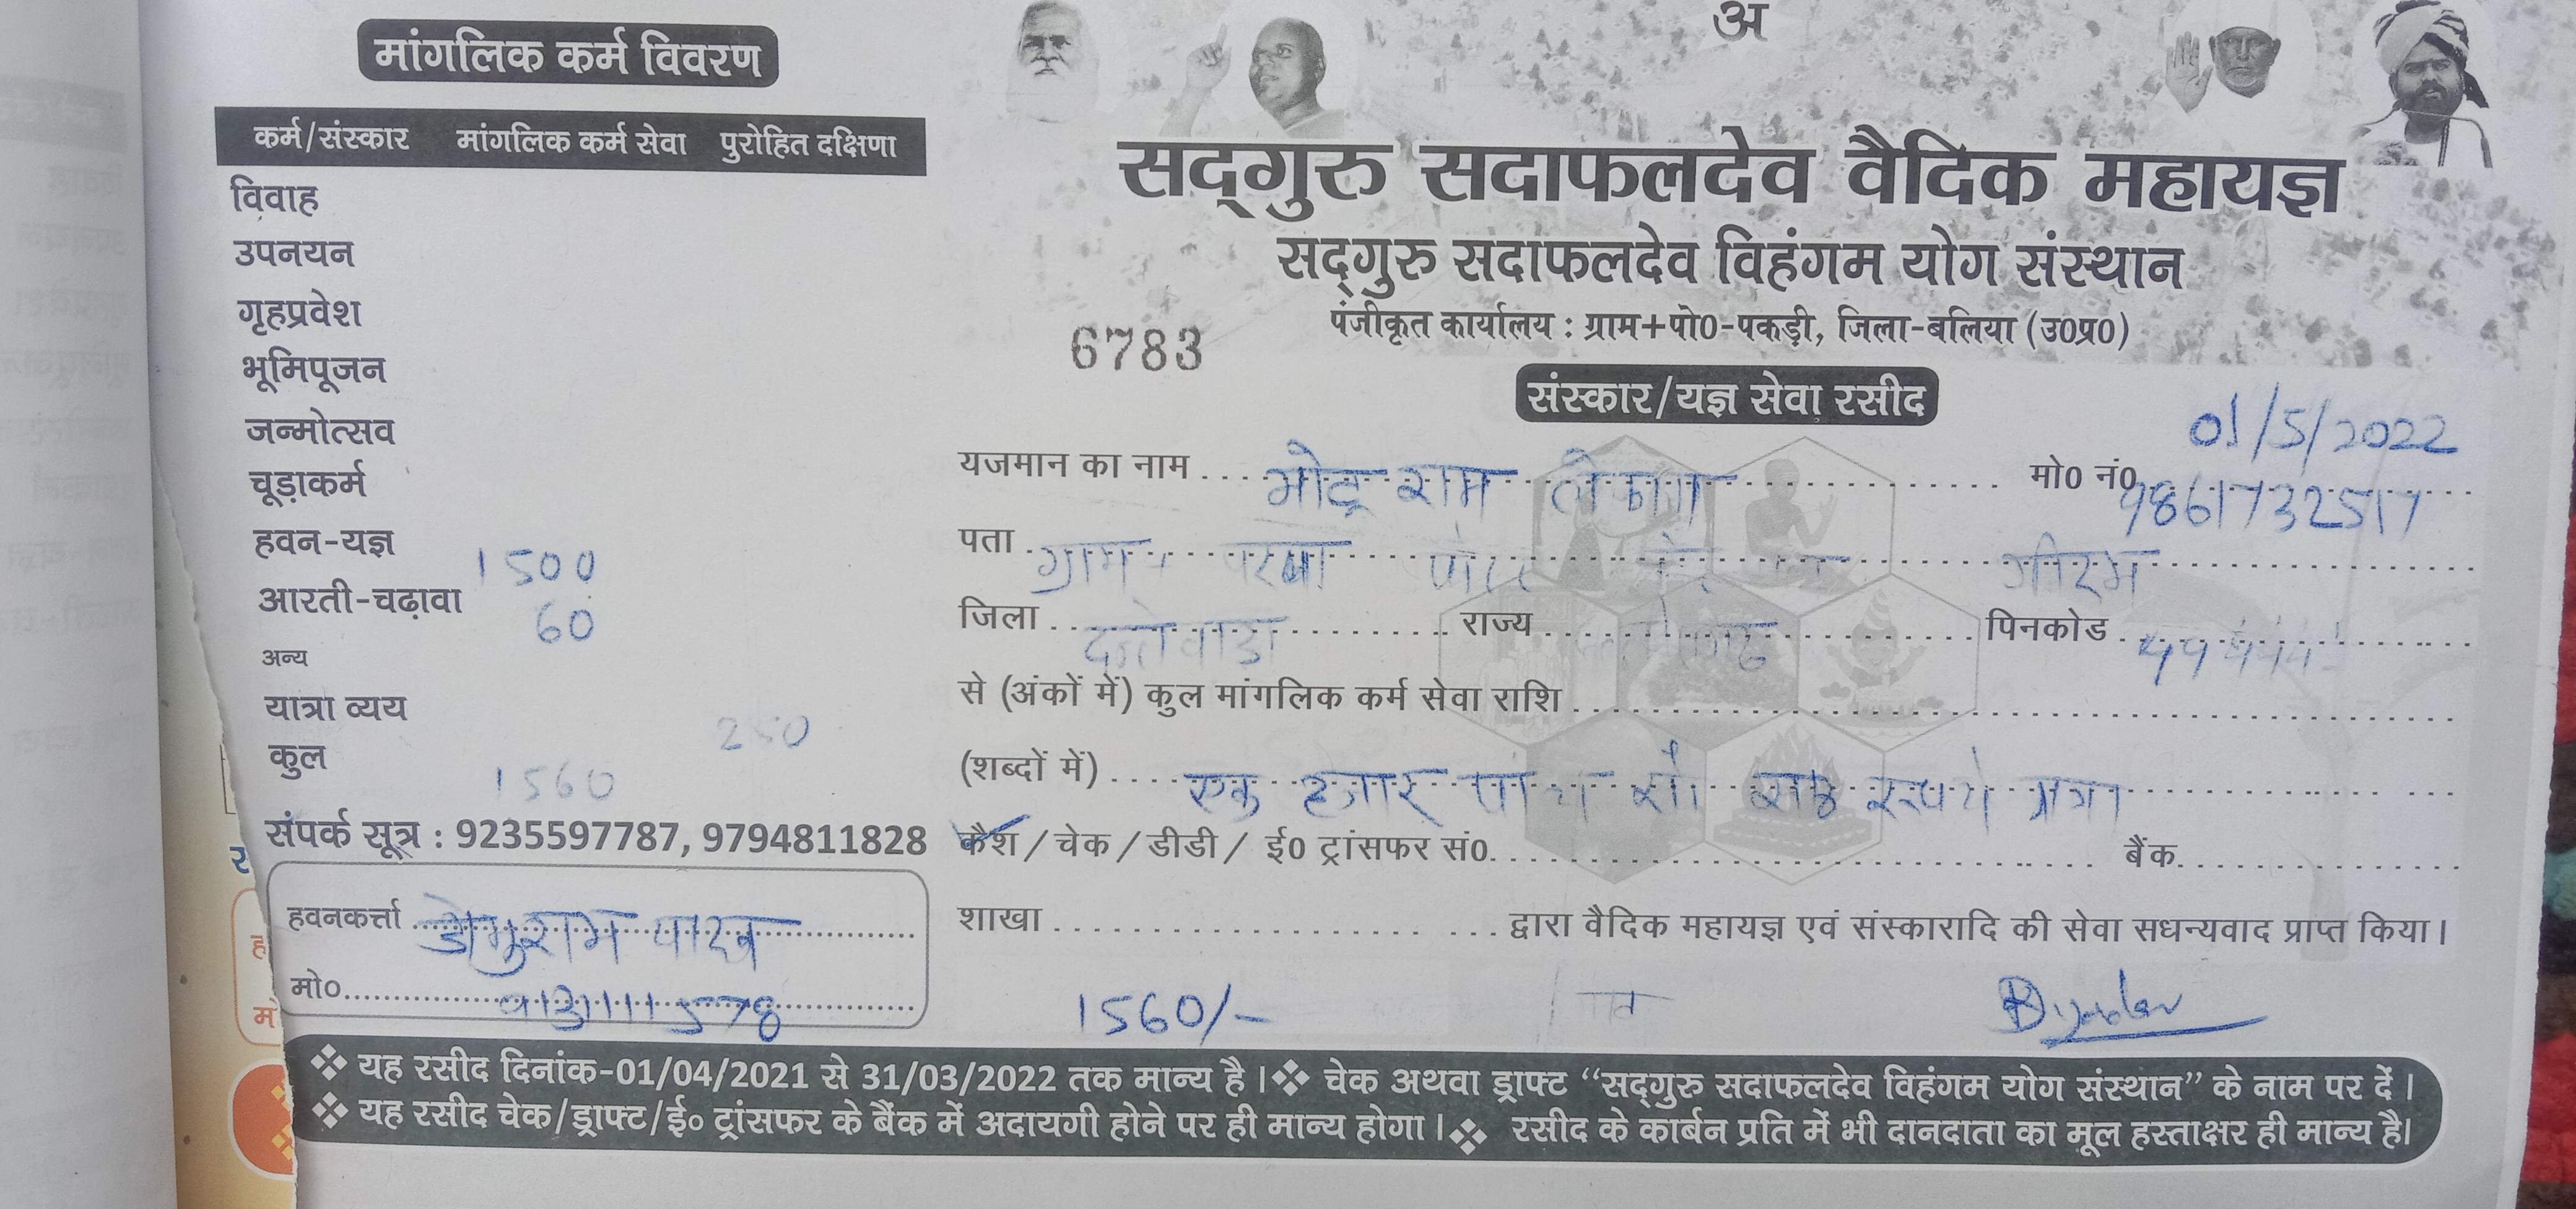 अ
मांगलिक कर्म विवरण
कर्म/संस्कार मांगलिक कर्म सेवा पुरोहित दक्षिणा
विवाह
उपनयन
गृहप्रवेश
भूमिपूजन
जन्मोत्सव
चूड़ाकर्म
हवन-यज्ञ 1500
आरती-चढ़ावा 60
अन्य
यात्रा व्यय 250
कुल 1560
संपर्क सूत्र : 9235597787, 9794811828
हवनकर्त्ता
मो०
सद्गुरु सदाफलदेव वैदिक महायज्ञ
सद्गुरु सदाफलदेव विहंगम योग संस्थान
पंजीकृत कार्यालय : ग्राम+पो0-पकड़ी, जिला-बलिया (उ0प्र0)
6783
संस्कार/यज्ञ सेवा रसीद
01/5/2022
यजमान का नाम राम मो0 नं0
पता ग्राम
जिला दन्तेवाड़ा राज्य पिनकोड
से (अंकों में) कुल मांगलिक कर्म सेवा राशि
(शब्दों में) एक हजार पांच सौ साठ रूपये मात्र
कैश / चेक / डीडी / ई0 ट्रांसफर सं0 बैंक
शाखा द्वारा वैदिक महायज्ञ एवं संस्कारादि की सेवा सधन्यवाद प्राप्त किया।
1560/-
❖ यह रसीद दिनांक-01/04/2021 से 31/03/2022 तक मान्य है। ❖ चेक अथवा ड्राफ्ट “सद्गुरु सदाफलदेव विहंगम योग संस्थान” के नाम पर दें।
❖ यह रसीद चेक/ड्राफ्ट/ई० ट्रांसफर के बैंक में अदायगी होने पर ही मान्य होगा। ❖ रसीद के कार्बन प्रति में भी दानदाता का मूल हस्ताक्षर ही मान्य है।